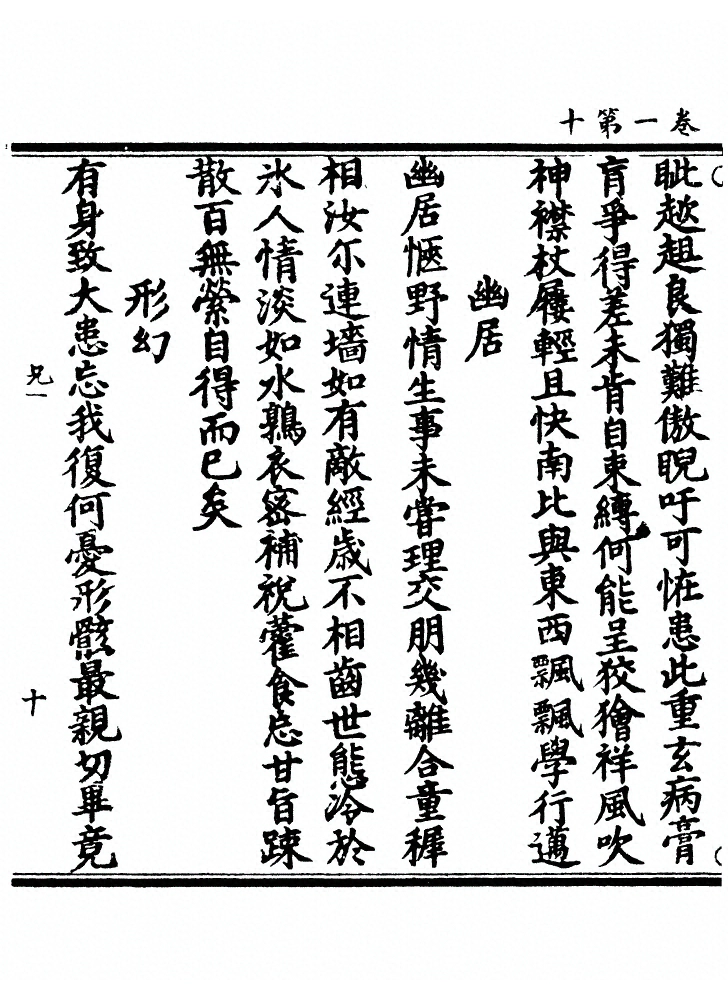 卷一第十
眦趑趄良獨難傲睨吁可恠患此重玄病膏
肓爭得差未肯自束縛何能呈狡獪祥風吹
神襟杖屨輕且快南比與東西飄飄學行邁
幽居
幽居愜野情生事未甞理交朋幾離合童穉
相汝尓連墻如有敵經歳不相齒世態冷於
氷人情淡如水鶉衣密補綻藿食忘甘旨踈
散百無縈自得而巳矣
形幻
有身致大患忘我復何憂形骸最親切畢竟
兄一
十